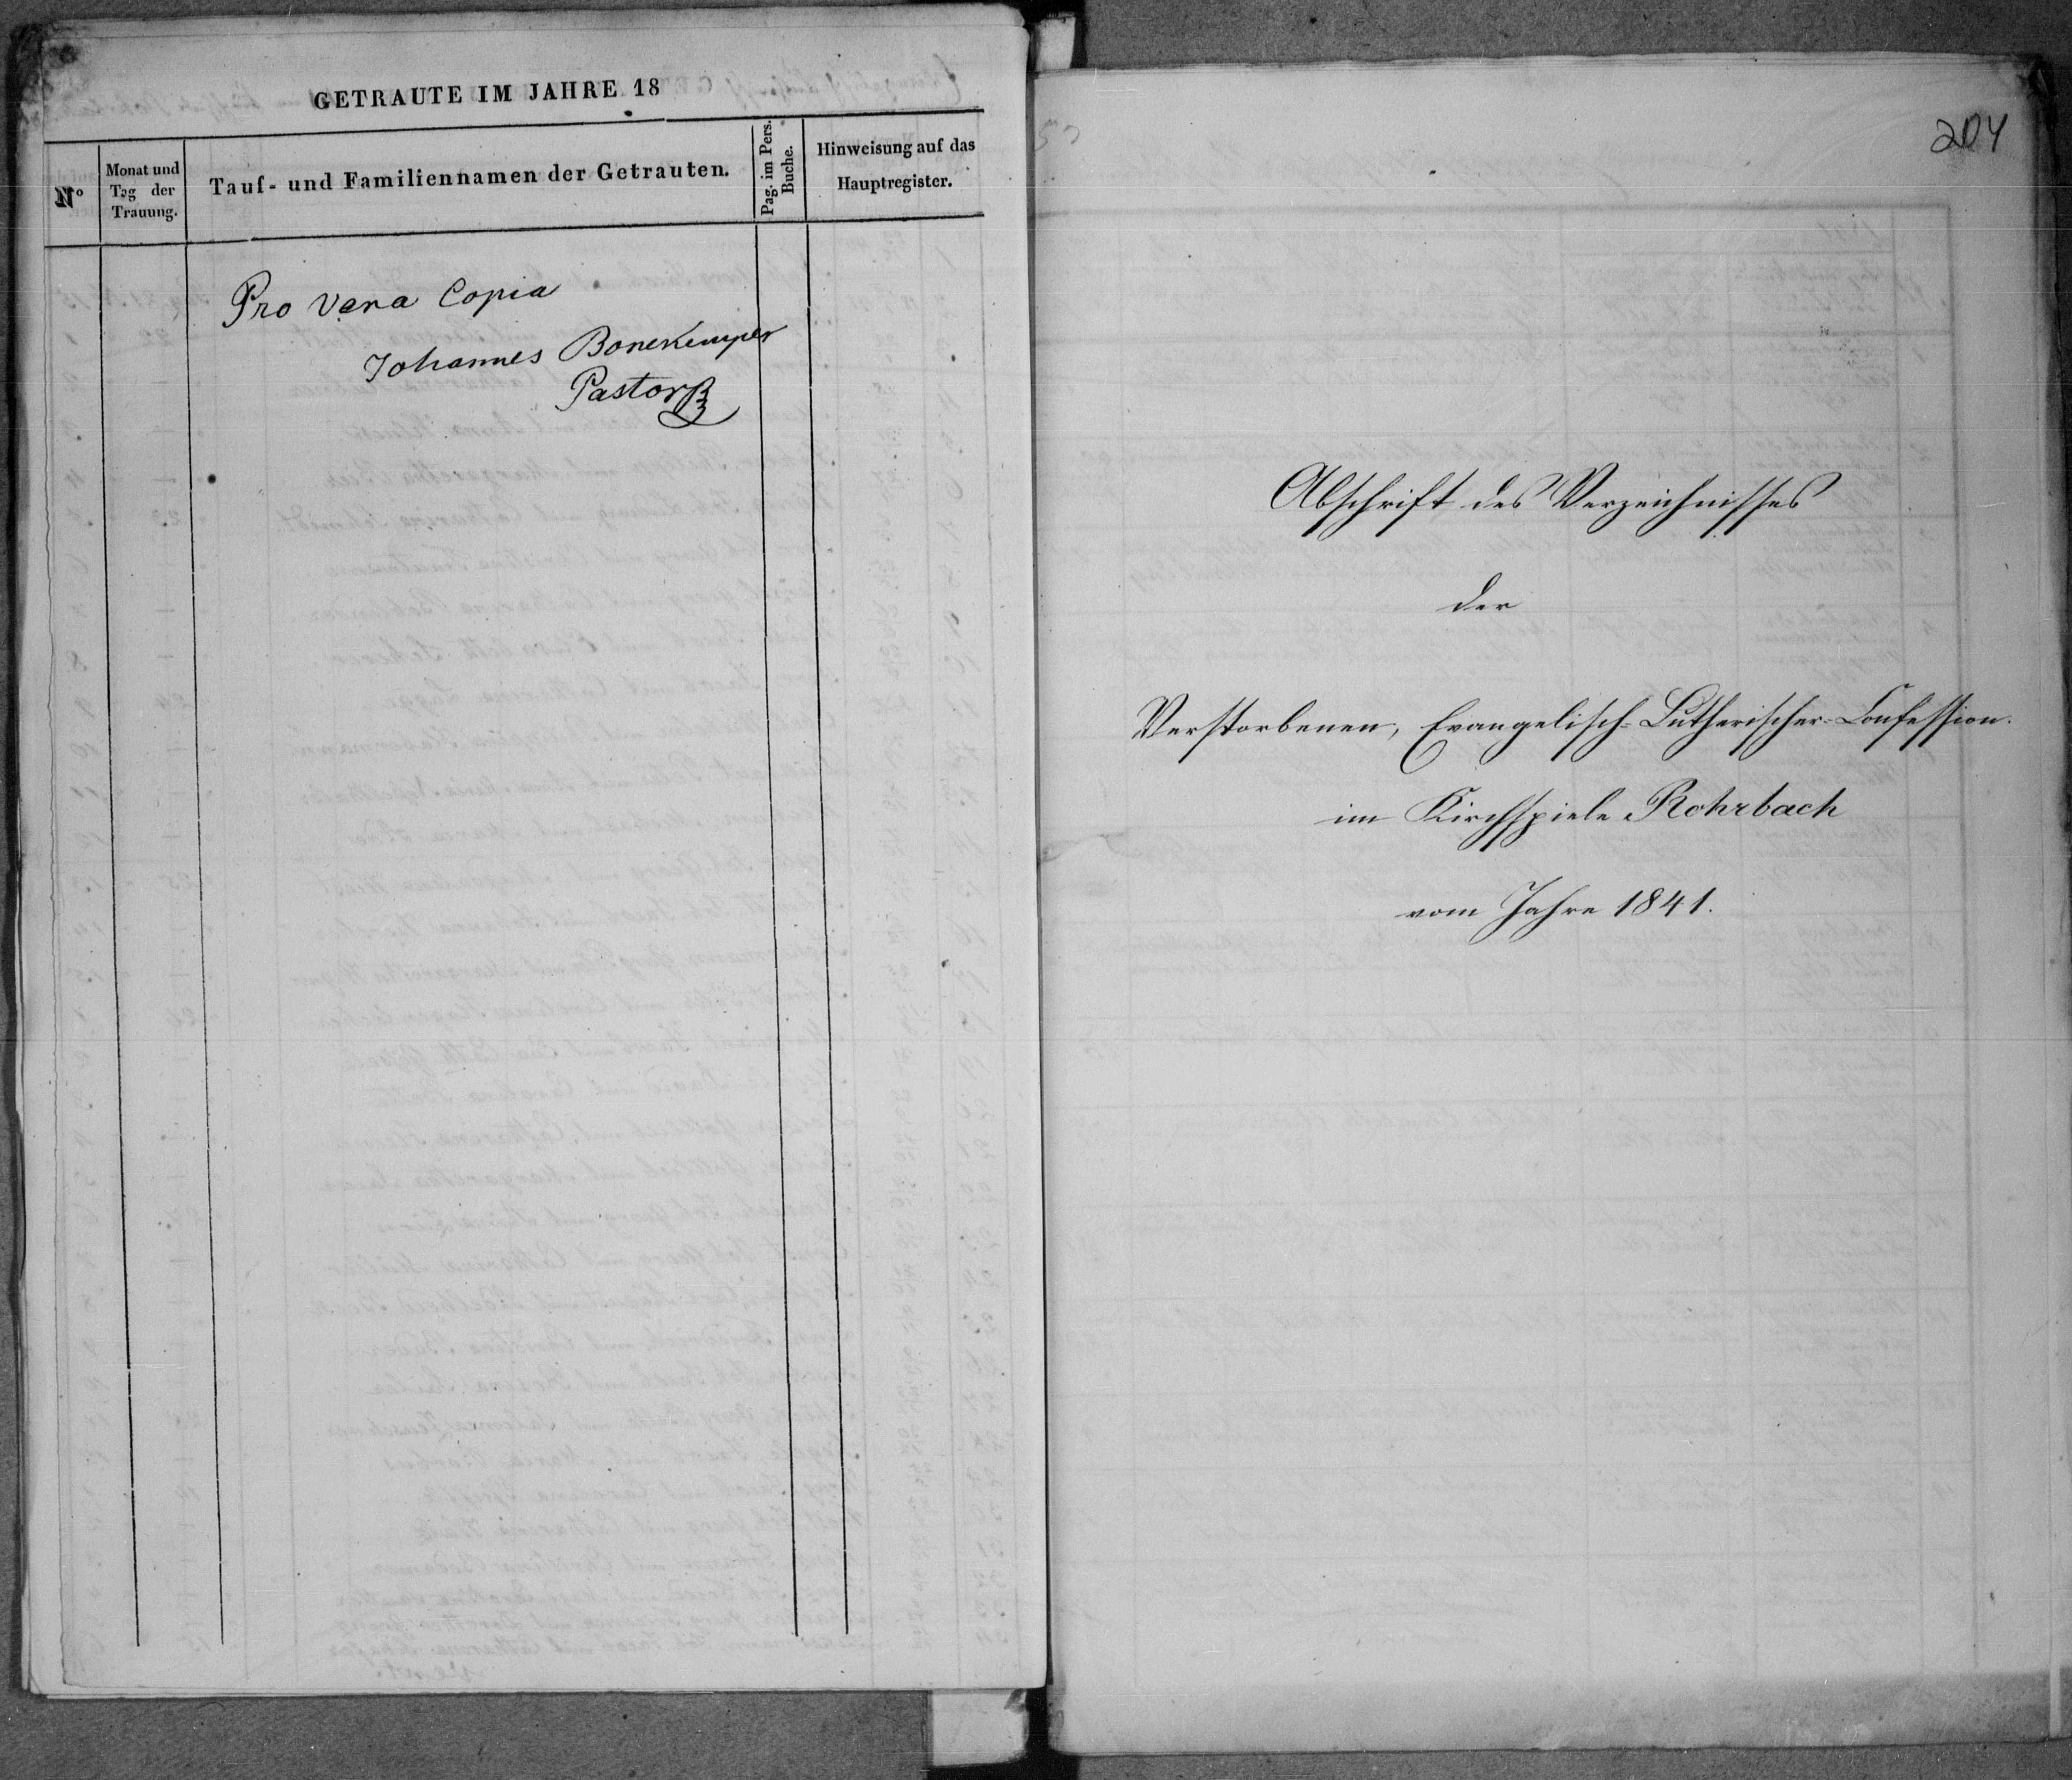 GETRAUTE IM JAHRE 18
N°
Monat und
Tag der
Trauung.
Tauf- und Familiennamen der Getrauten.
Pag. im Pers.
Buche.
Hinweisung auf das
Hauptregister.
Pro vera Copia
Johannes Bonekemper
Pastor
204
Abschrift des Verzeichnisses
der
Verstorbenen, Evangelisch-Lutherischer-Confession.
im Kirchspiele Rohrbach
vom Jahre 1841.